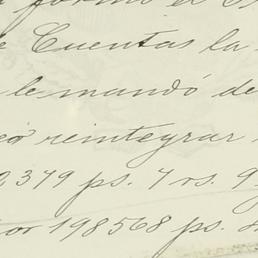 formó el
Cuentas la
le mandó de
reintegrar
2379 ps. 7 rs. 9
por 198568 ps.